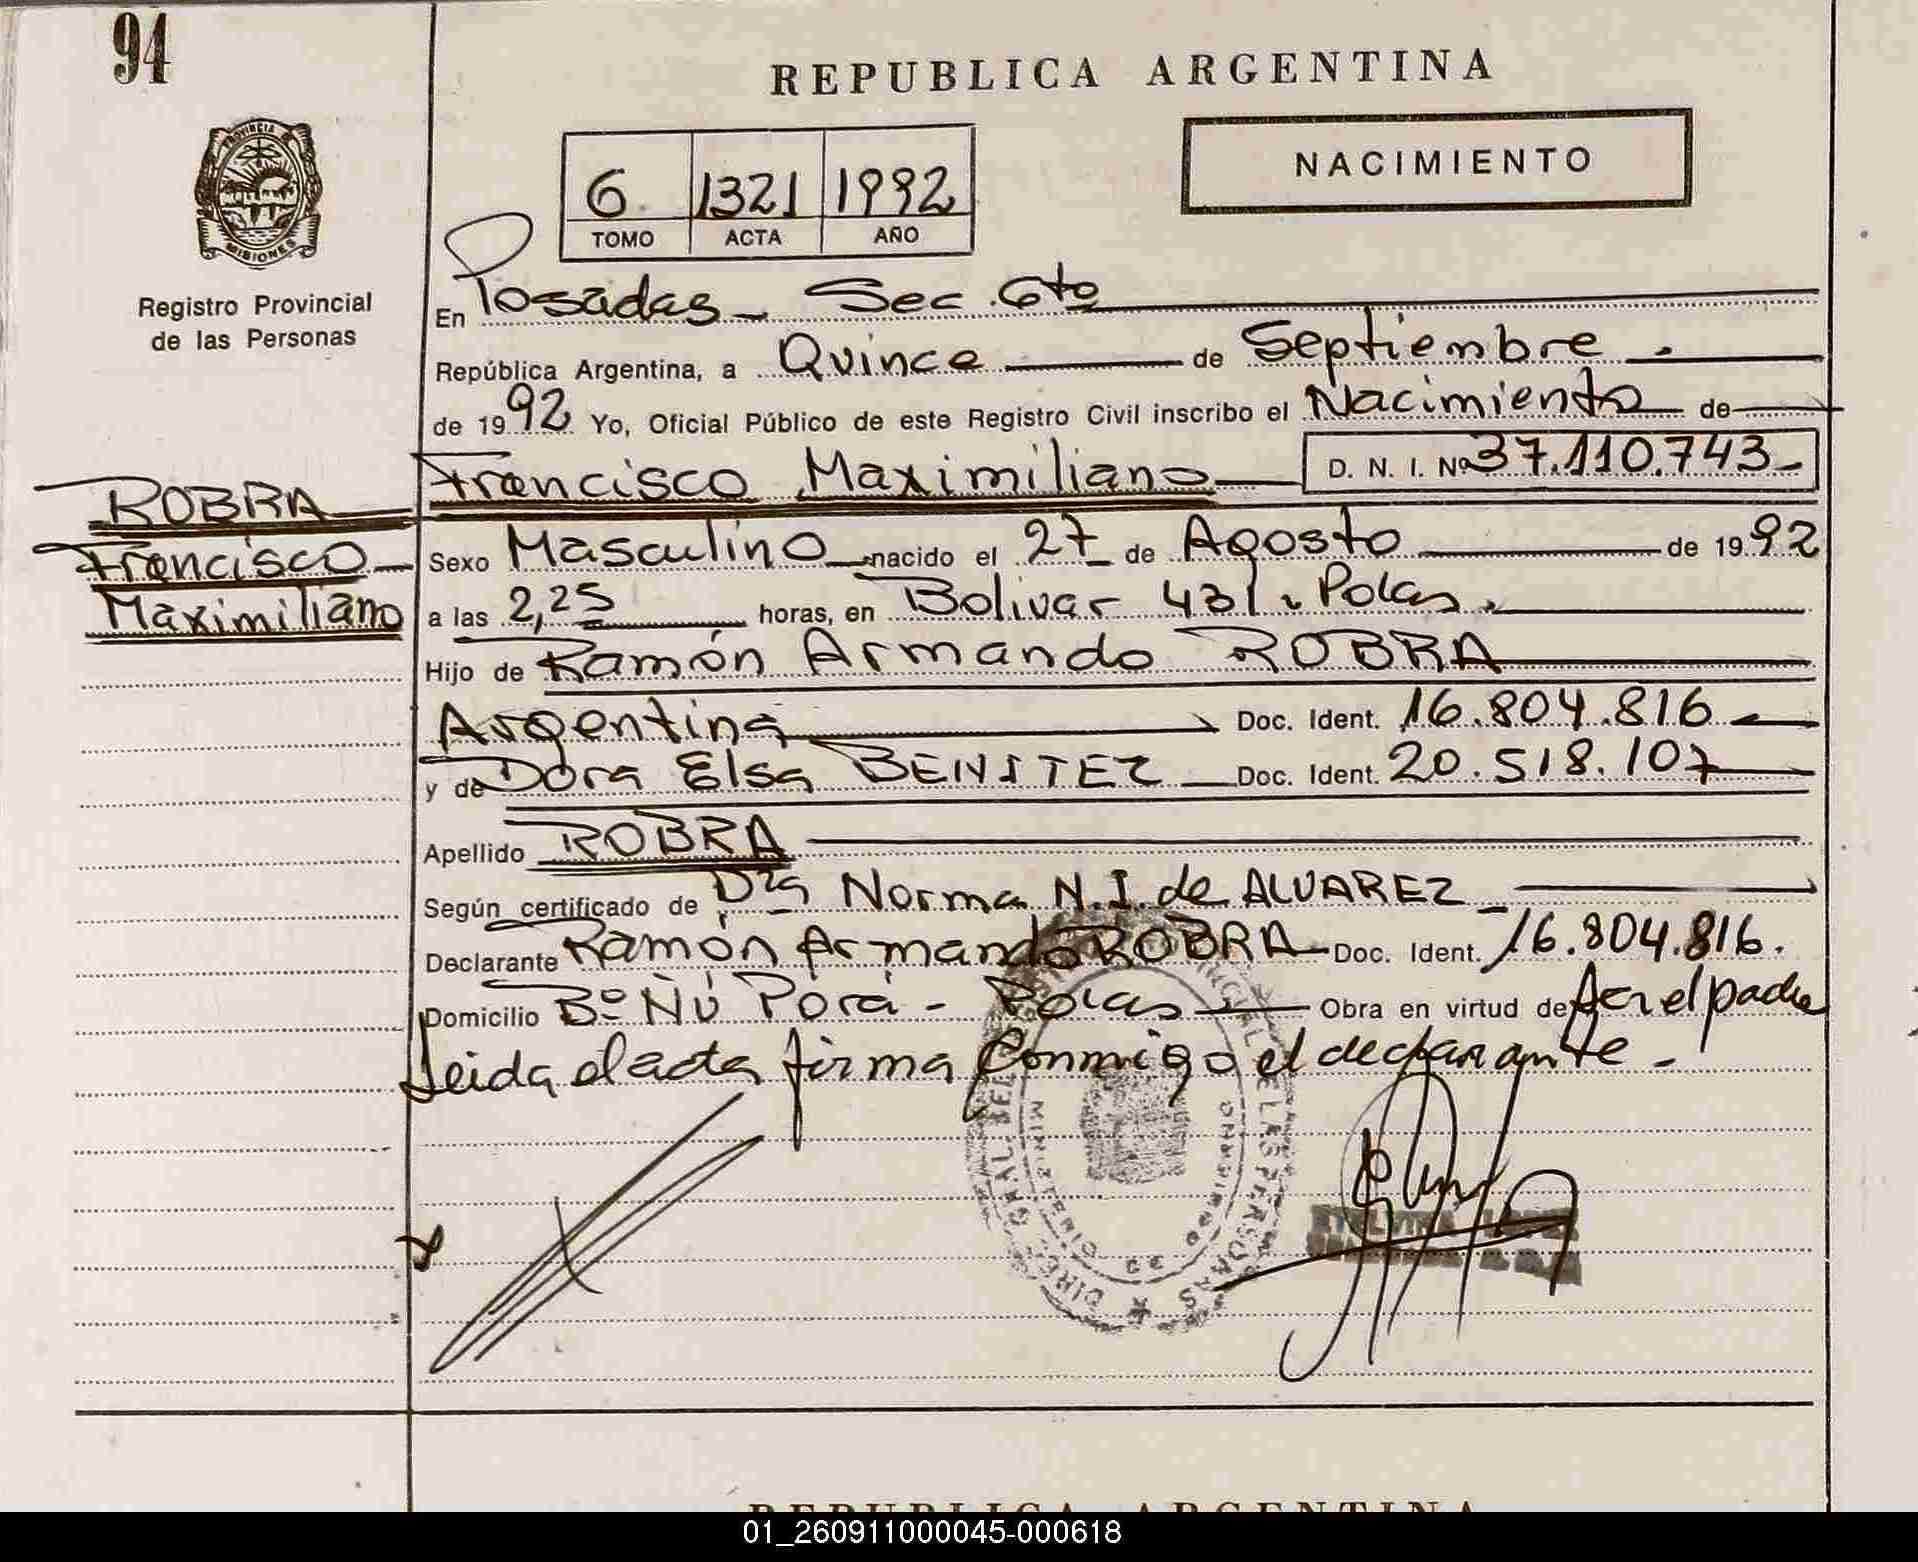 94
REPUBLICA ARGENTINA
NACIMIENTO
PROVINCIA DE
MISIONES
6 1321 1992
TOMO ACTA AÑO
Registro Provincial
de las Personas
En Posadas - Sec. 6to
República Argentina, a Quince de Septiembre -
de 1992 Yo, Oficial Público de este Registro Civil inscribo el Nacimiento de
Francisco Maximiliano D. N. I. Nº 37.110.743-
ROBRA
Francisco
Maximiliano
Sexo Masculino nacido el 27 de Agosto de 1992
a las 2,25 horas, en Bolivar 431 - Pdas.
Hijo de Ramón Armando ROBRA
Argentina Doc. Ident. 16.804.816
y de Dora Elsa BENITEZ Doc. Ident. 20.518.107
Apellido ROBRA
Según certificado de Dra Norma N. I. de ALVAREZ
Declarante Ramón Armando ROBRA Doc. Ident. 16.804.816.
Domicilio Bº Ñú Porá - Pdas - Obra en virtud de ser el padre
Leida el acta firma conmigo el declarante -
REPUBLICA ARGENTINA
01_260911000045-000618